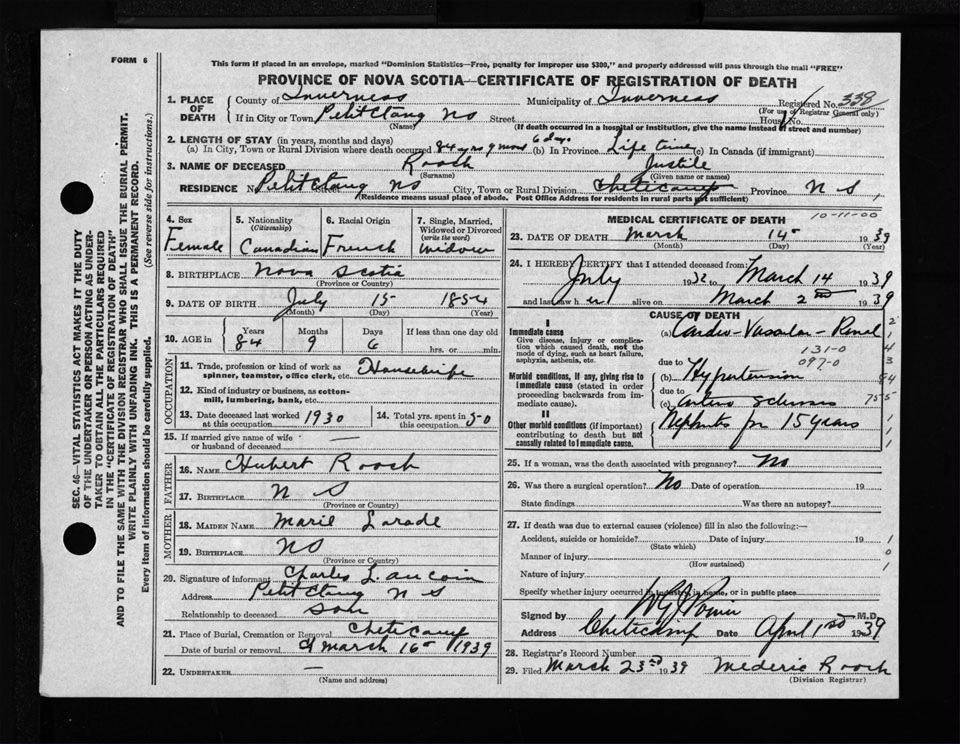 FORM 6
This form if placed in an envelope, marked "Dominion Statistics—Free, penalty for improper use $300," and properly addressed will pass through the mail "FREE"
PROVINCE OF NOVA SCOTIA—CERTIFICATE OF REGISTRATION OF DEATH
SEC. 46—VITAL STATISTICS ACT MAKES IT THE DUTY
OF THE UNDERTAKER OR PERSON ACTING AS UNDER-
TAKER TO OBTAIN ALL THE PARTICULARS REQUIRED
IN THE "CERTIFICATE OF REGISTRATION OF DEATH"
AND TO FILE THE SAME WITH THE DIVISION REGISTRAR WHO SHALL ISSUE THE BURIAL PERMIT.
WRITE PLAINLY WITH UNFADING INK. THIS IS A PERMANENT RECORD.
Every item of information should be carefully supplied. (See reverse side for instructions.)
1. PLACE OF DEATH County of Inverness Municipality of Inverness Registered No. 338
(For use of Registrar General only)
If in City or Town Petit Etang NS Street House No.
(Name) (If death occurred in a hospital or institution, give the name instead of street and number)
2. LENGTH OF STAY (in years, months and days)
(a) In City, Town or Rural Division where death occurred 84 yrs 9 mons 6 days (b) In Province Life time (c) In Canada (if immigrant)
3. NAME OF DECEASED Roach Justile
(Surname) (Given name or names)
RESIDENCE No. Petit Etang NS City, Town or Rural Division Cheticamp Province N S
(Residence means usual place of abode. Post Office Address for residents in rural parts not sufficient)
4. Sex Female
5. Nationality (Citizenship) Canadian
6. Racial Origin French
7. Single, Married, Widowed or Divorced (write the word) widow
8. BIRTHPLACE Nova Scotia
(Province or Country)
9. DATE OF BIRTH July 15 1854
(Month) (Day) (Year)
10. AGE in Years 84 Months 9 Days 6 If less than one day old hrs. or min.
OCCUPATION
11. Trade, profession or kind of work as spinner, teamster, office clerk, etc. Housewife
12. Kind of industry or business, as cotton-mill, lumbering, bank, etc.
13. Date deceased last worked at this occupation 1930
14. Total yrs. spent in this occupation 50
15. If married give name of wife or husband of deceased —
FATHER
16. NAME Hubert Roach
17. BIRTHPLACE N S
(Province or Country)
MOTHER
18. MAIDEN NAME Marie Larade
19. BIRTHPLACE NS
(Province or Country)
20. Signature of informant Charles L. aucoin
Address Petit Etang N S
Relationship to deceased Son
21. Place of Burial, Cremation or Removal Cheticamp
Date of burial or removal March 16 1939
22. UNDERTAKER —
(Name and address)
MEDICAL CERTIFICATE OF DEATH
10-11-00
23. DATE OF DEATH March 14 1939
(Month) (Day) (Year)
24. I HEREBY CERTIFY that I attended deceased from:
July 1932 to March 14 1939
and last saw h er alive on March 2nd 1939
CAUSE OF DEATH
I
Immediate cause
Give disease, injury or complication which caused death, not the mode of dying, such as heart failure, asphyxia, asthenia, etc.
(a) Cardio-Vascular-Renal
131-0
097-0
due to
Morbid conditions, if any, giving rise to immediate cause (stated in order proceeding backwards from immediate cause).
(b) Hypertension
due to
(c) Arterio Sclerosis
II
Other morbid conditions (if important) contributing to death but not causally related to immediate cause.
Nephritis for 15 years
25. If a woman, was the death associated with pregnancy? No
26. Was there a surgical operation? No Date of operation 19
State findings Was there an autopsy?
27. If death was due to external causes (violence) fill in also the following:—
Accident, suicide or homicide? Date of injury 19
(State which)
Manner of injury
(How sustained)
Nature of injury
Specify whether injury occurred in industry, in home, or in public place
Signed by M.D.
Address Cheticamp Date April 1st 1939
28. Registrar's Record Number
29. Filed March 23rd 1939 Mederic Roach
(Division Registrar)